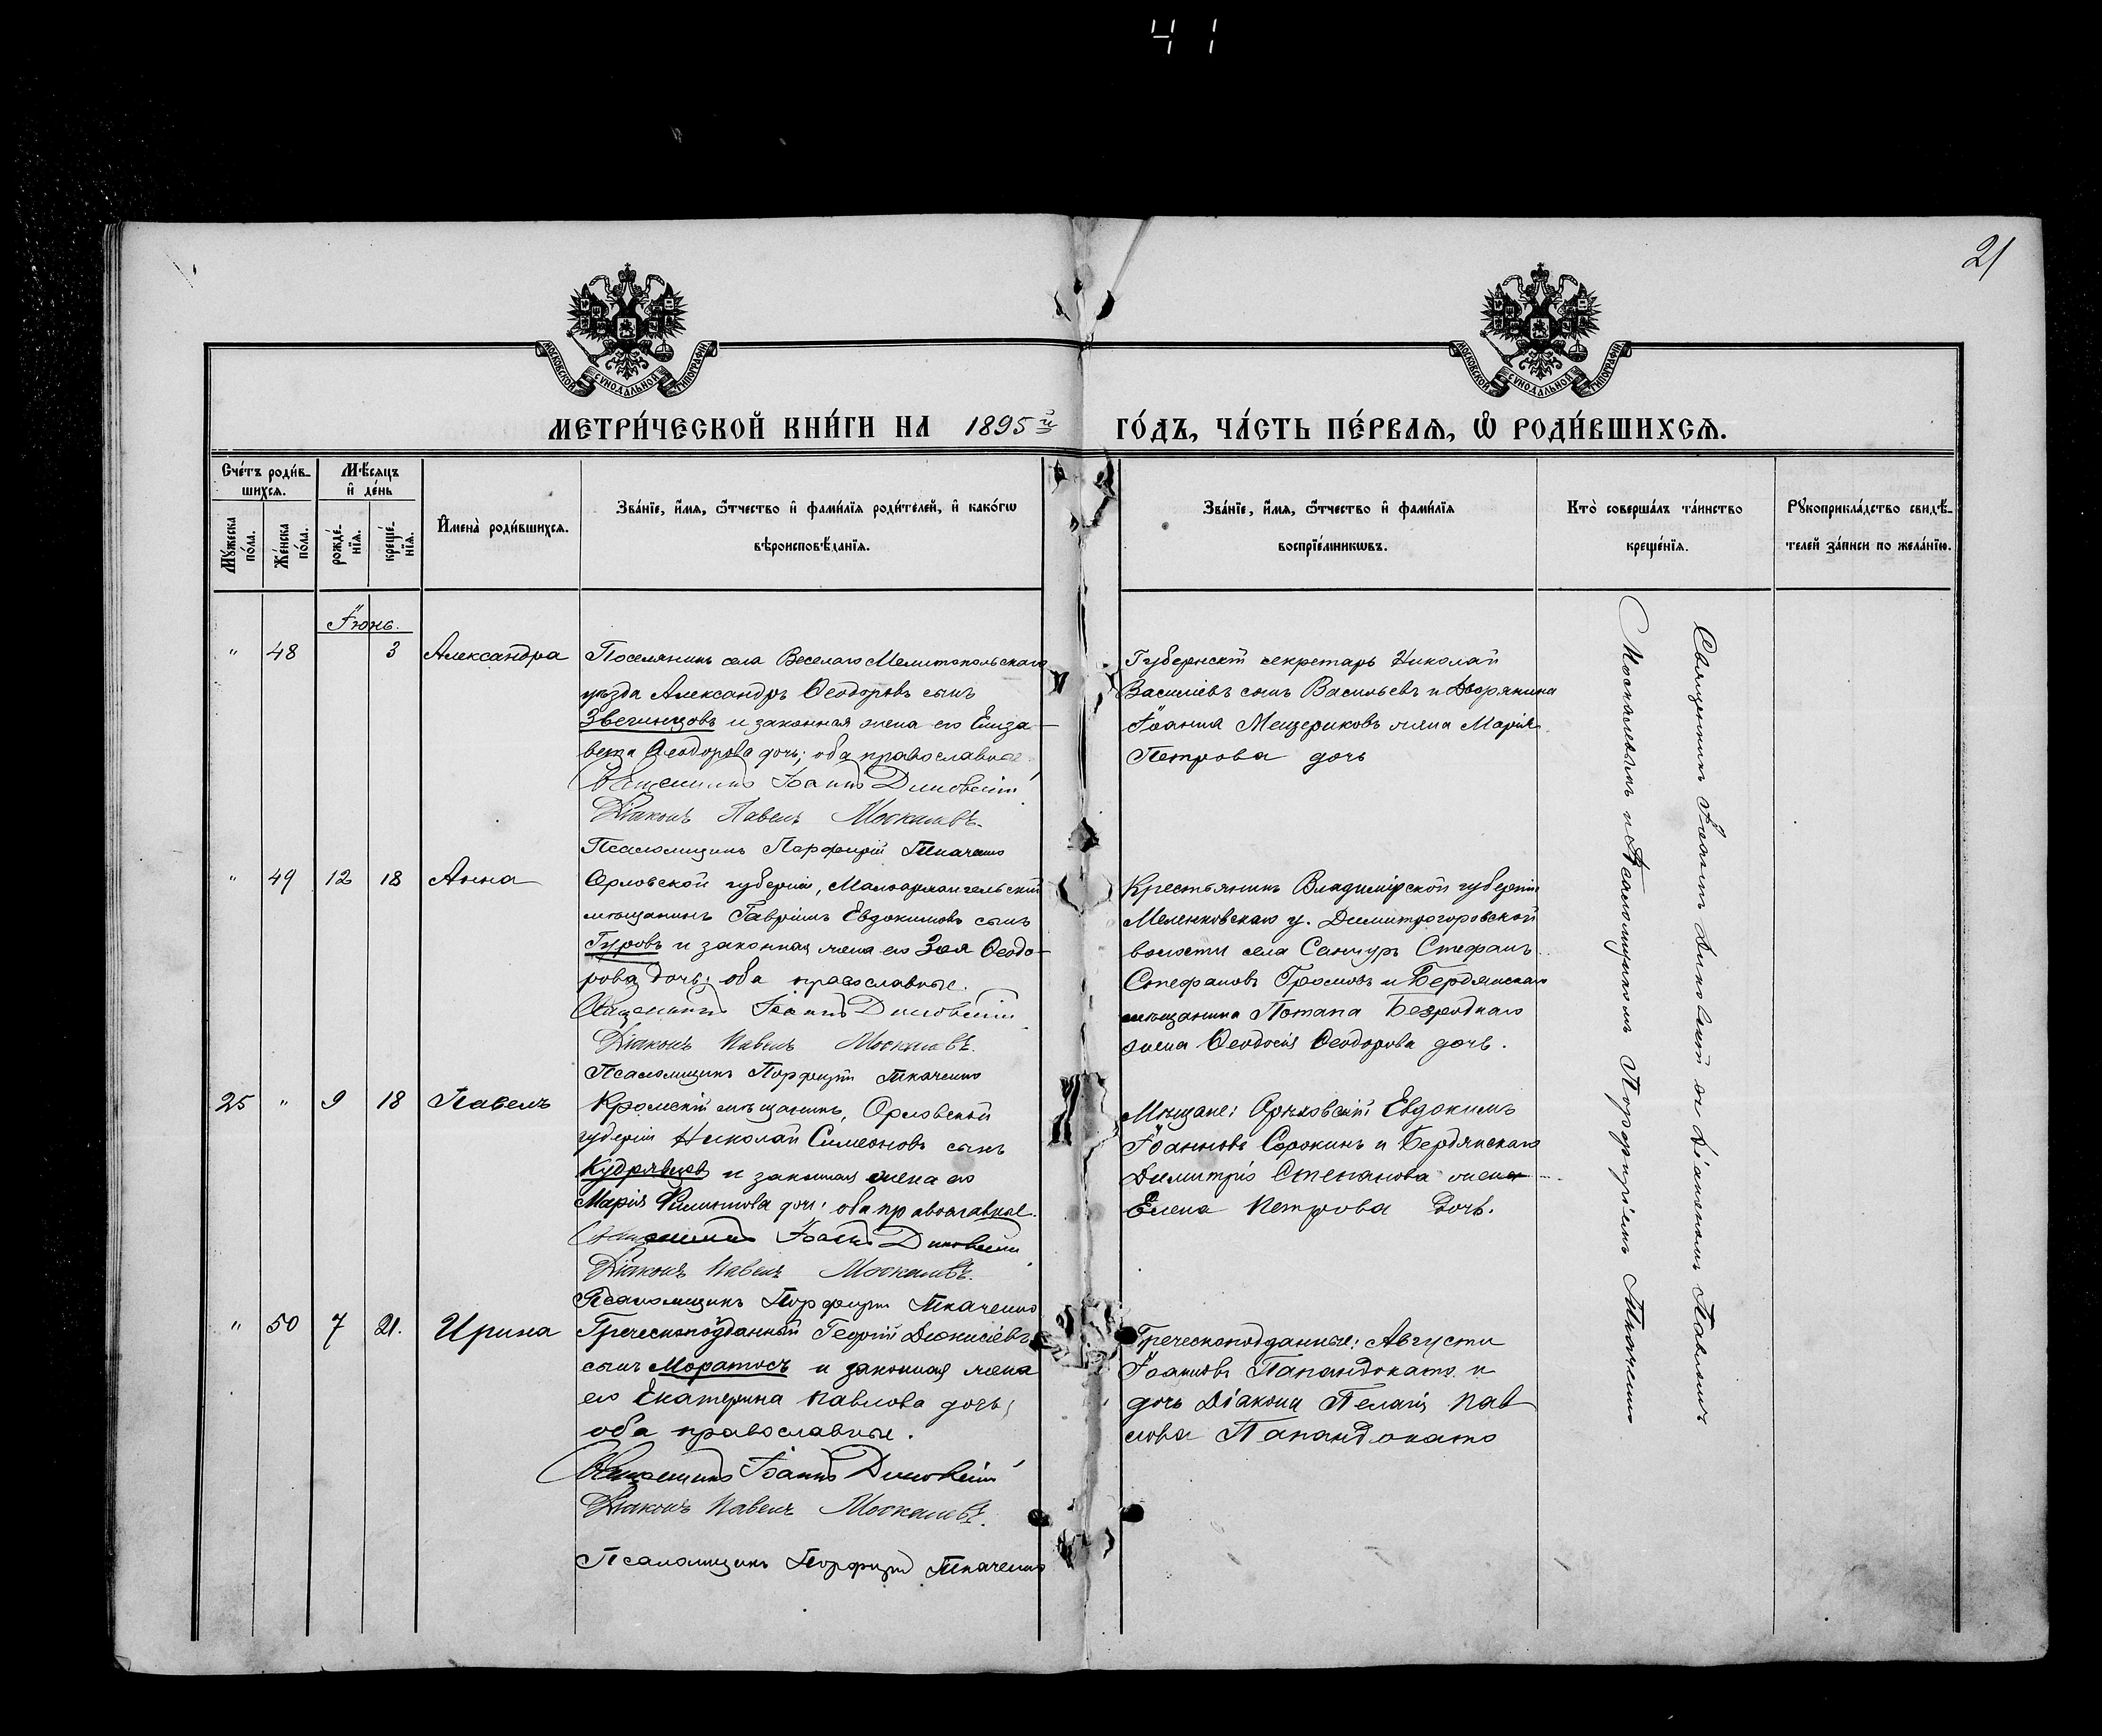 41
21
МОСКОВСКОЙ СУНОДАЛЬНОЙ ТИПОГРАФІИ
МОСКОВСКОЙ СУНОДАЛЬНОЙ ТИПОГРАФІИ
МЕТРИ́ЧЕСКОЙ КНИ́ГИ НА 1895й ГО́ДЪ, ЧА́СТЬ ПЕ́РВАѦ, Ѡ҆ РОДИ́ВШИХСѦ.
Сче́тъ роди́в-
шихсѧ.
Мѣ́сѧцъ
и҆ де́нь
Мꙋ́жеска
по́ла.
Же́нска
по́ла.
рожде́-
нїѧ.
креще́-
нїѧ.
И҆мена̀ роди́вшихсѧ.
Зва́нїе, и҆́мѧ, ѻ҆́тчество и҆ фами́лїѧ роди́телей, и҆ како́гѡ
вѣроисповѣ́данїѧ.
Зва́нїе, и҆́мѧ, ѻ҆́тчество и҆ фами́лїѧ
воспрїе́мникѡвъ.
Кто̀ соверша́лъ та́инство
креще́нїѧ.
Рꙋкоприкла́дство свидѣ́-
телей за́писи по жела́нїю.
Іюнь.
" 48 3 Александра
Поселянинъ села Веселаго Мелитопольскаго
уѣзда Александръ Ѳеодоровъ сынъ
Звегинцовъ и законная жена его Елиза-
вета Ѳеодорова дочь; оба православные
Священникъ Іоаннъ Диковскій
Діаконъ Павелъ Москалевъ.
Псаломщикъ Порфирій Ткаченко
Губернскій секретарь Николай
Василіевъ сынъ Васильевъ и Дворянина
Іоанна Мещерикова жена Марія
Петрова дочь
" 49 12 18 Анна
Орловской губерніи, Малоархангельскій
мѣщанинъ Гавріилъ Евдокимовъ сынъ
Гуровъ и законная жена его Зоя Ѳеодо-
рова дочь; оба православные.
Священникъ Іоаннъ Диковскій
Діаконъ Павелъ Москалевъ.
Псаломщикъ Порфирій Ткаченко
Крестьянинъ Владимірской губерніи
Меленковскаго у. Димитрогоровской
волости села Санчуръ Стефанъ
Стефановъ Громовъ и Бердянскаго
мѣщанина Потапа Безроднаго
жена Ѳеодосія Ѳеодорова дочь.
25 " 9 18 Павелъ
Кромскій мѣщанинъ, Орловской
губерніи Николай Симеоновъ сынъ
Кудрявцевъ и законная жена его
Марія Филиппова дочь; оба православные.
Священникъ Іоаннъ Диковскій
Діаконъ Павелъ Москалевъ.
Псаломщикъ Порфирій Ткаченко
Мѣщане: Орѣховскій Евдокимъ
Іоанновъ Сорокинъ и Бердянскаго
Димитрія Степанова жена
Елена Петрова дочь.
" 50 7 21. Ирина
Греческоподданный Георгій Діонисіевъ
сынъ Моратосъ и законная жена
его Екатерина Павлова дочь;
оба православные.
Священникъ Іоаннъ Диковскій
Діаконъ Павелъ Москалевъ.
Псаломщикъ Порфирій Ткаченко
Греческоподданные: Августи
Іоанновъ Папандокато и
дочь Діакона Пелагія Пав
лова Папандокато
Священникъ Іоаннъ Диковскій съ Діакономъ Павломъ
Москалевымъ и Псаломщикомъ Порфиріемъ Ткаченко